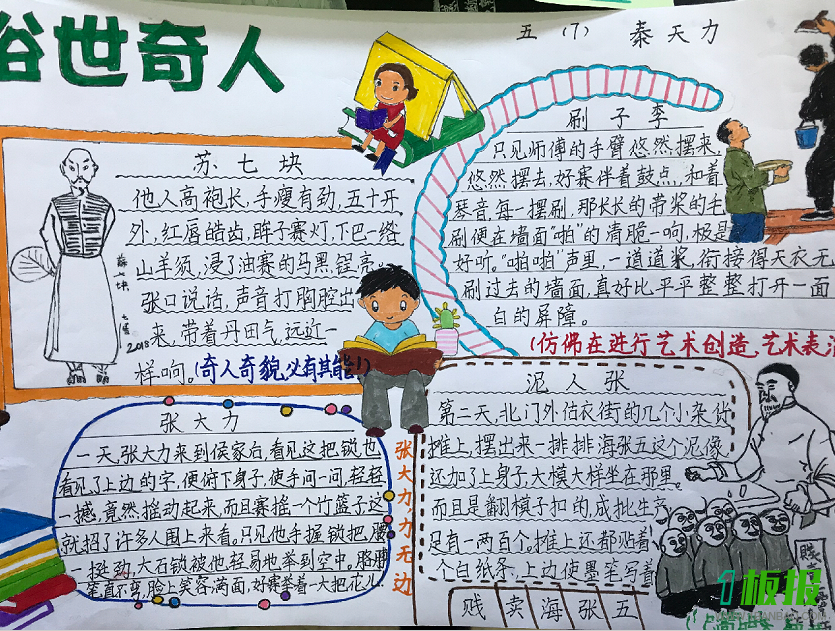 俗世奇人
五 (7) 秦天力
苏七块
他人高袍长，手瘦有劲，五十开
外，红唇皓齿，眸子赛灯，下巴一绺
山羊须，浸了油赛的乌黑锃亮。
张口说话，声音打胸腔出
来，带着丹田气，远近一
样响。(奇人奇貌，必有其能!)
苏七块
2018
刷子李
只见师傅的手臂悠然摆来，
悠然摆去，好赛伴着鼓点，和着
琴音，每一摆刷，那长长的带浆的毛
刷便在墙面“啪”的清脆一响，极是
好听。“啪啪”声里，一道道浆，衔接得天衣无
刷过去的墙面，真好比平平整整打开一面
白的屏障。
(仿佛在进行艺术创造，艺术表
张大力
一天，张大力来到侯家后，看见这把锁，也
看见了上边的字，便俯下身子，使手问一问，轻轻
一撼，竟然摇动起来，而且赛摇一个竹篮子，这
就招了许多人围上来看。只见他手握锁把，腰
一挺劲，大石锁被他轻易地举到空中。胳膊
笔直不弯，脸上笑容满面，好赛举着一大把花儿。
张大力，力无边
泥人张
第二天，北门外估衣街的几个小杂货
摊上，摆出来一排排海张五这个泥像，
还加了上身子，大模大样坐在那里。
而且是翻模子扣的，成批生产，
足有一两百个。摊上还都贴着
个白纸条，上边使墨笔写着
贱卖海张五
贱
1板报